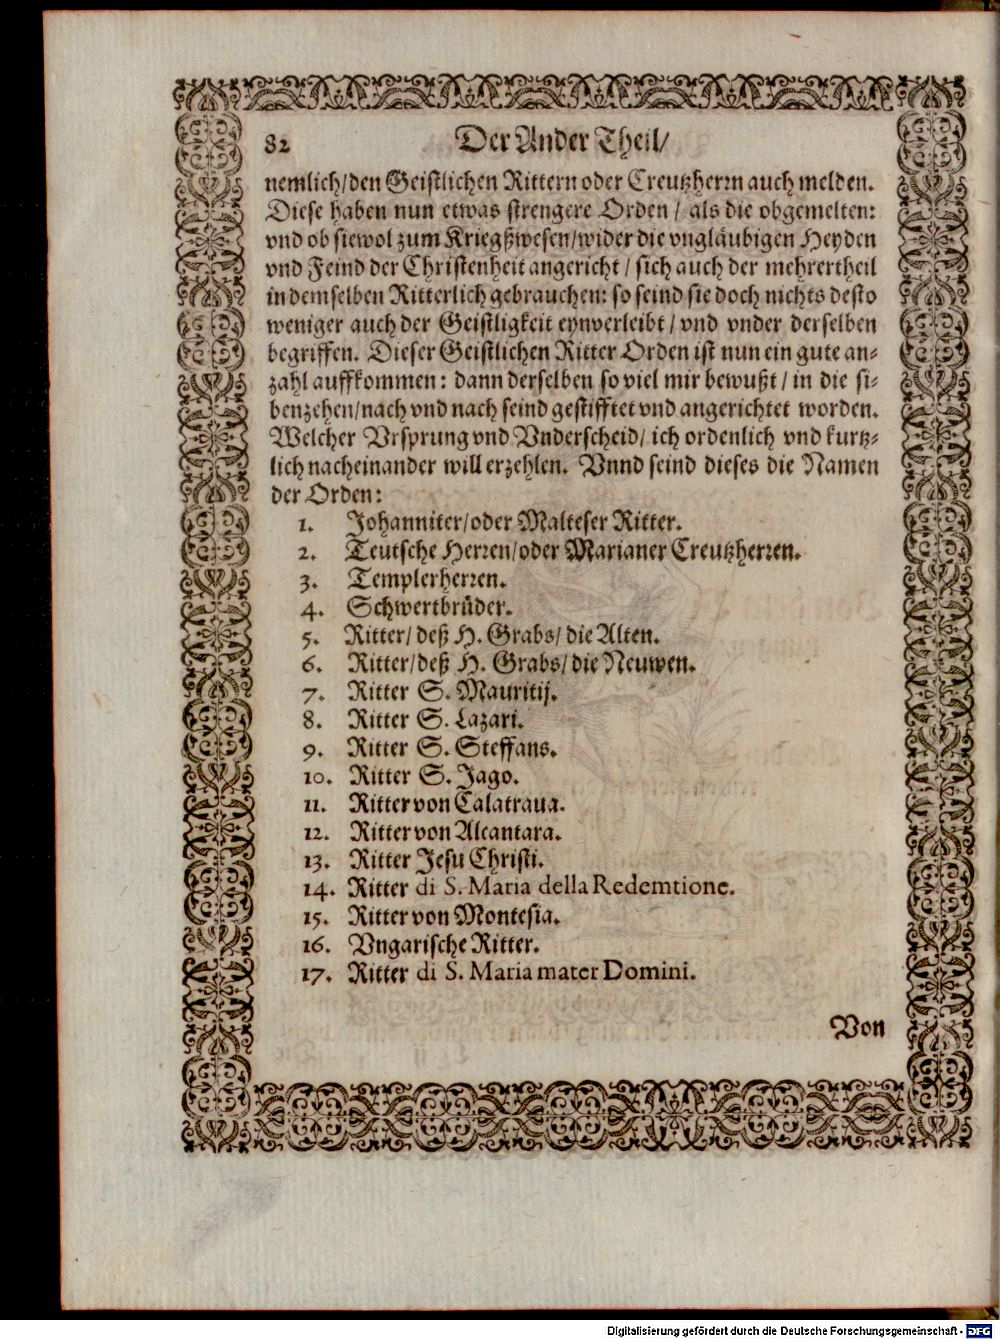 82 Der Ander Theil/
nemlich/den Geistlichen Rittern oder Creutzherrn auch melden.
Diese haben nun etwas strengere Orden / als die obgemelten:
vnd ob sie wol zum Kriegßwesen/wider die vngläubigen Heyden
vnd Feind der Christenheit angericht / sich auch der mehrertheil
in demselben Ritterlich gebrauchen: so seind sie doch nichts desto
weniger auch der Geistligkeit eynverleibt / vnd vnder derselben
begriffen. Dieser Geistlichen Ritter Orden ist nun ein gute an-
zahl auffkommen: dann derselben so viel mir bewußt / in die si-
benzehen/nach vnd nach seind gestifftet vnd angerichtet worden.
Welcher Vrsprung vnd Vnderscheid/ ich ordenlich vnd kurtz-
lich nacheinander will erzehlen. Vnnd seind dieses die Namen
der Orden:
1. Johanniter/oder Malteser Ritter.
2. Teutsche Herren/oder Marianer Creutzherren.
3. Templerherren.
4. Schwertbrüder.
5. Ritter/ deß H. Grabs/ die Alten.
6. Ritter/deß H. Grabs/die Neuwen.
7. Ritter S. Mauritij.
8. Ritter S. Lazari.
9. Ritter S. Steffans.
10. Ritter S. Jago.
11. Ritter von Calatraua.
12. Ritter von Alcantara.
13. Ritter Jesu Christi.
14. Ritter di S. Maria della Redemtione.
15. Ritter von Montesia.
16. Vngarische Ritter.
17. Ritter di S. Maria mater Domini.
Von
Digitalisierung gefördert durch die Deutsche Forschungsgemeinschaft - DFG